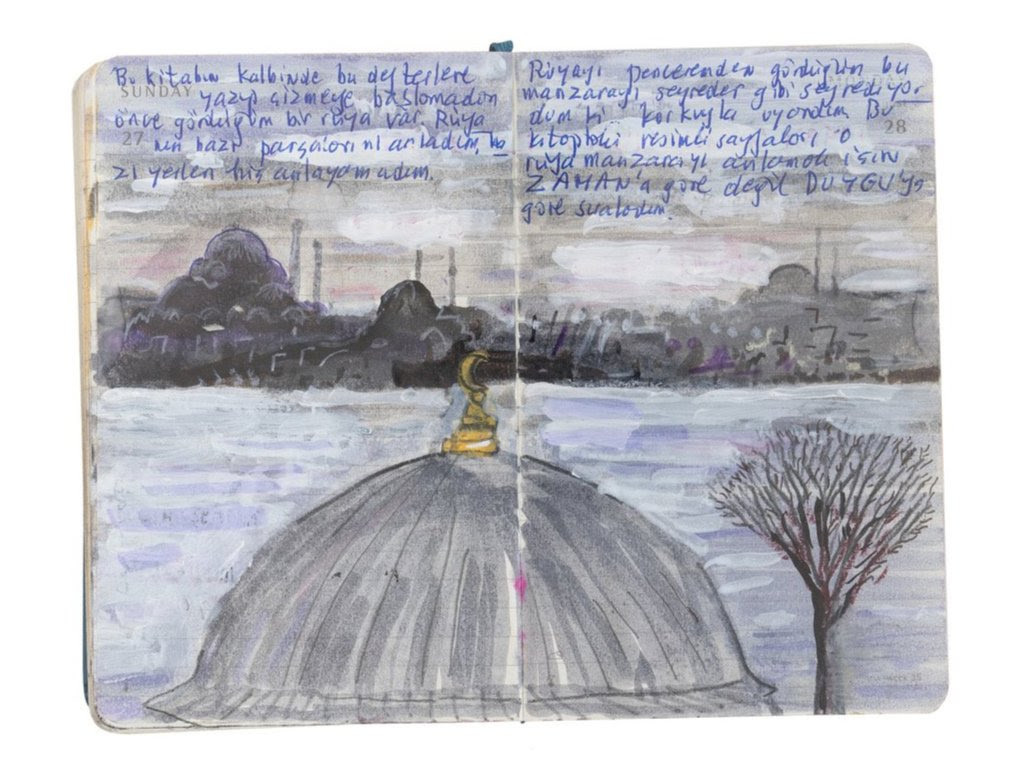 Bu kitabın kalbinde bu defterlere
SUNDAY
yazıp çizmeye başlamadan
önce gördüğüm bir rüya var. Rüya
27
nın bazı parçalarını anladım, ba
zı yerleri hiç anlayamadım.
Rüyayı penceremden gördüğüm bu
manzarayı seyreder gibi seyrediyor
dum ki korkuyla uyandım. Bu
28
kitaptaki resimli sayfaları o
rüya manzarayı anlamak için
ZAMAN'a göre değil DUYGU'ya
göre sıraladım.